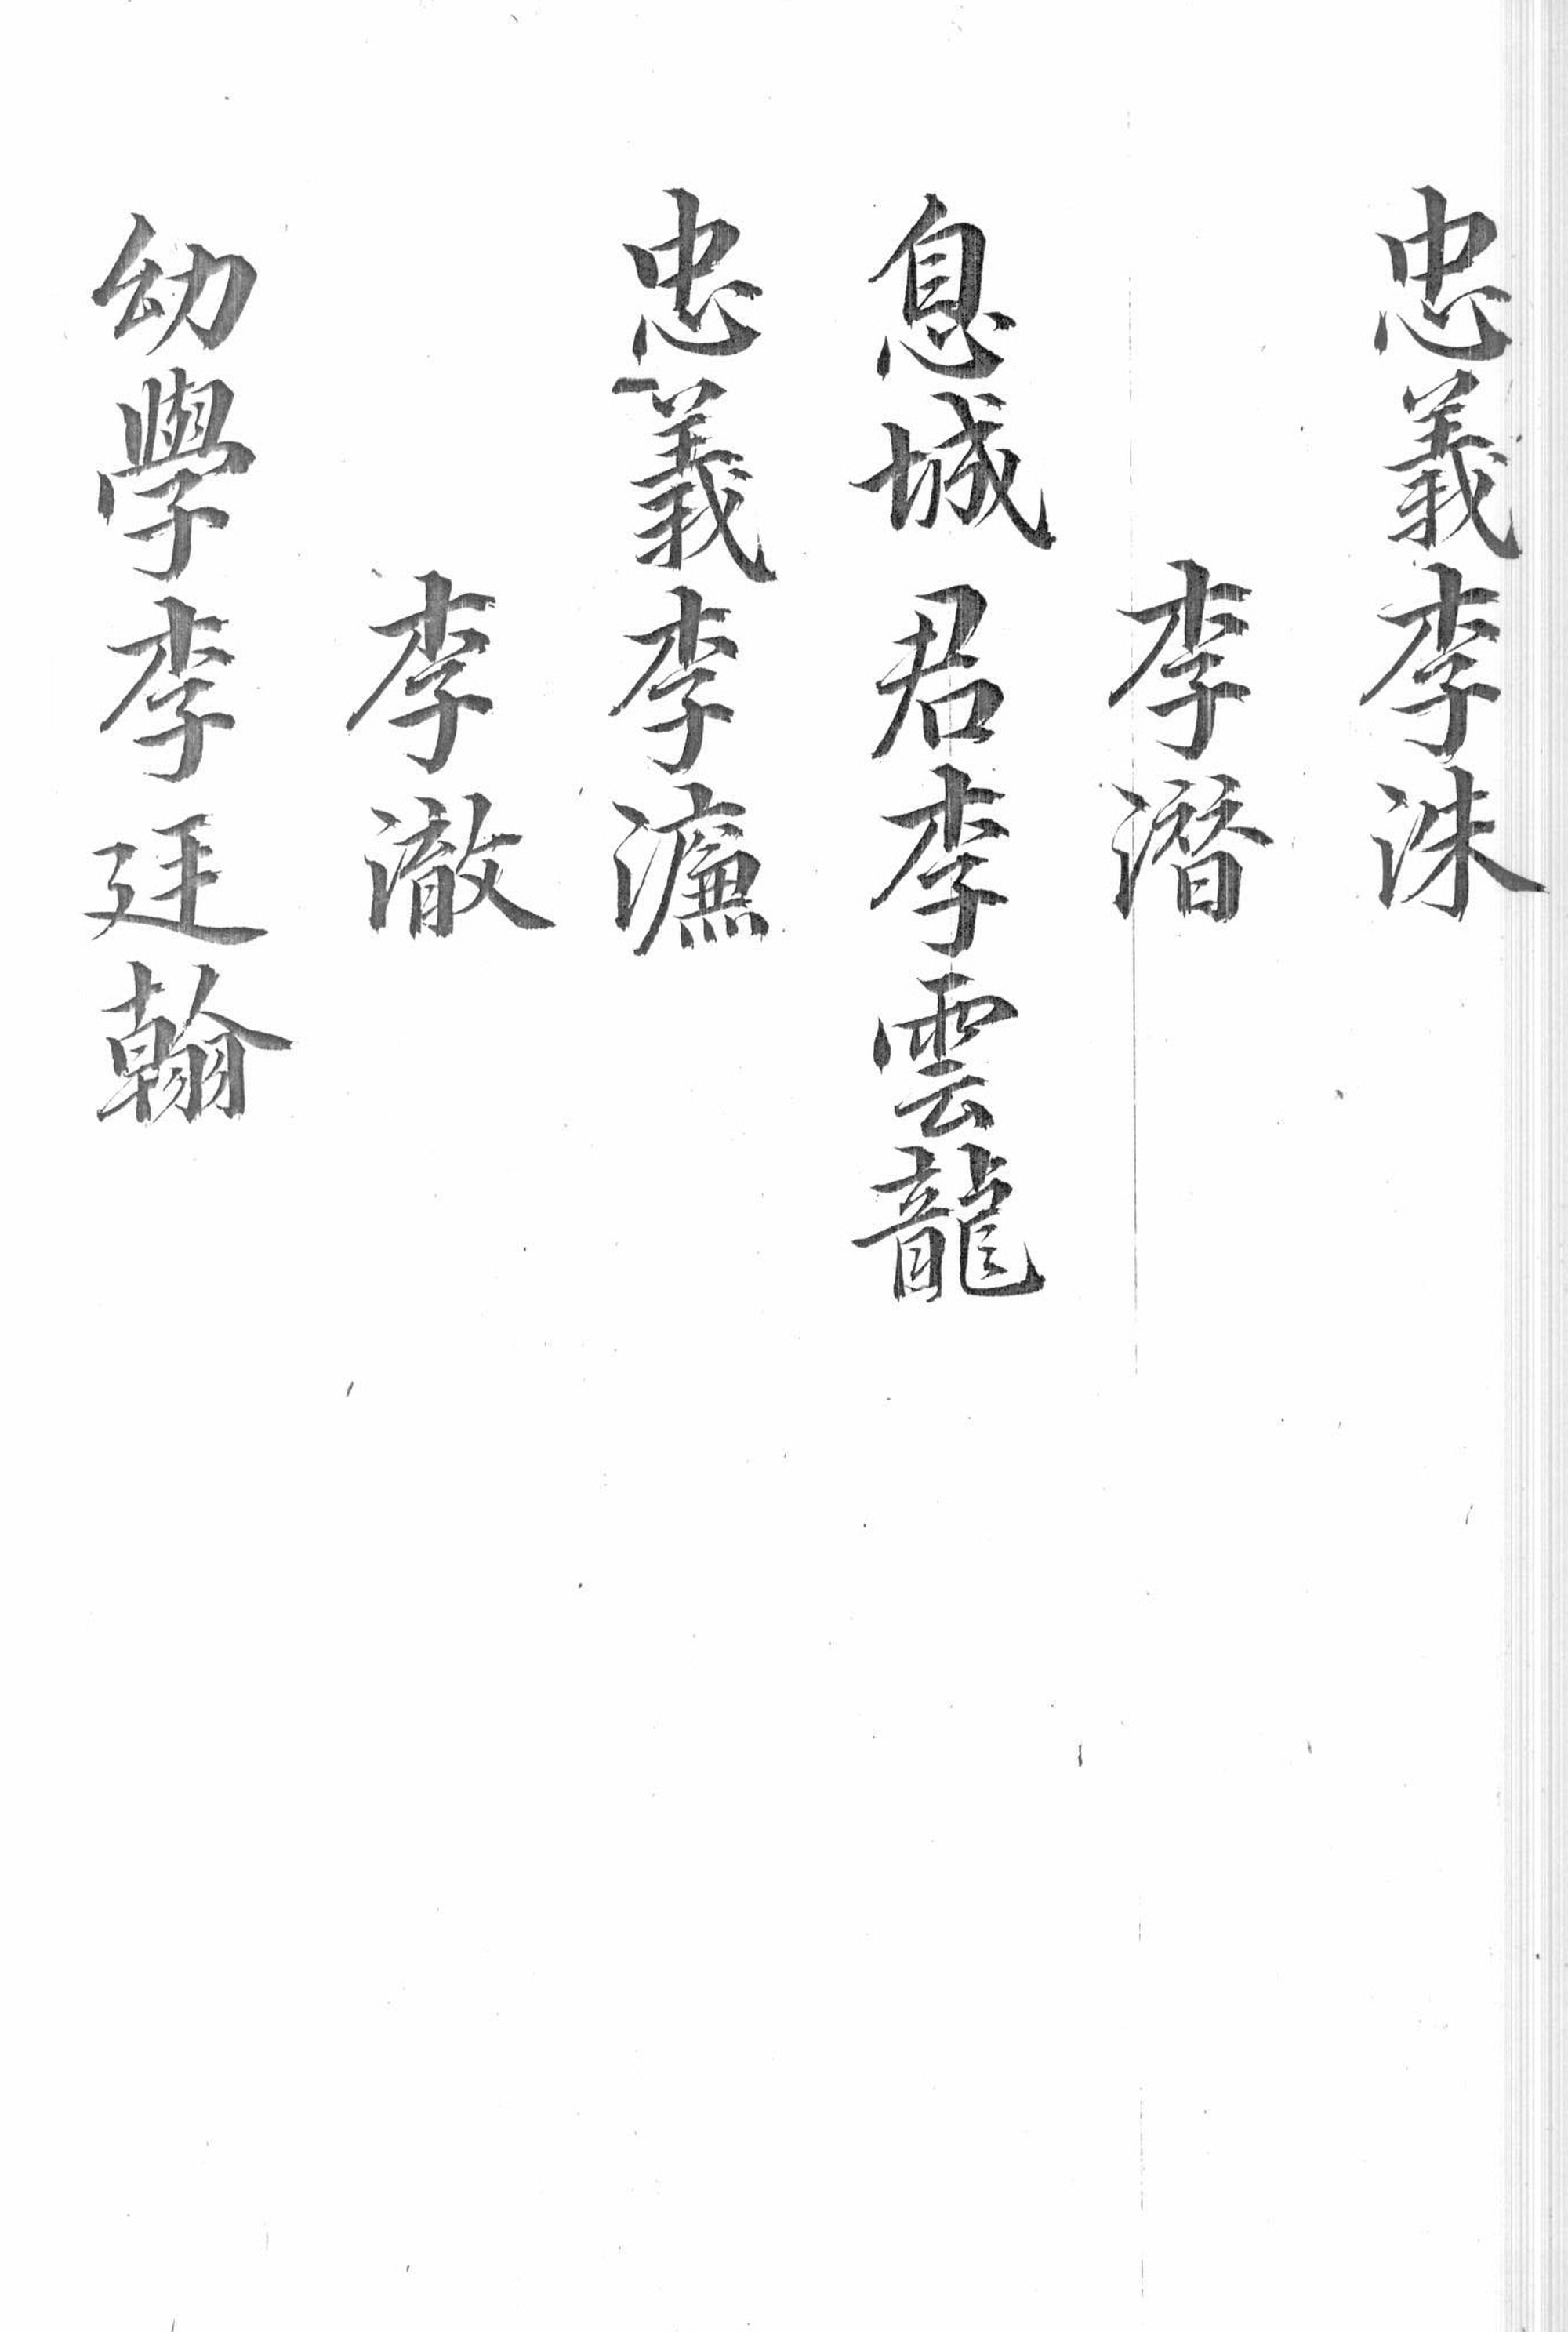 忠義李洙
李潛
息城君李雲龍
忠義李濂
李澈
幼學李廷翰